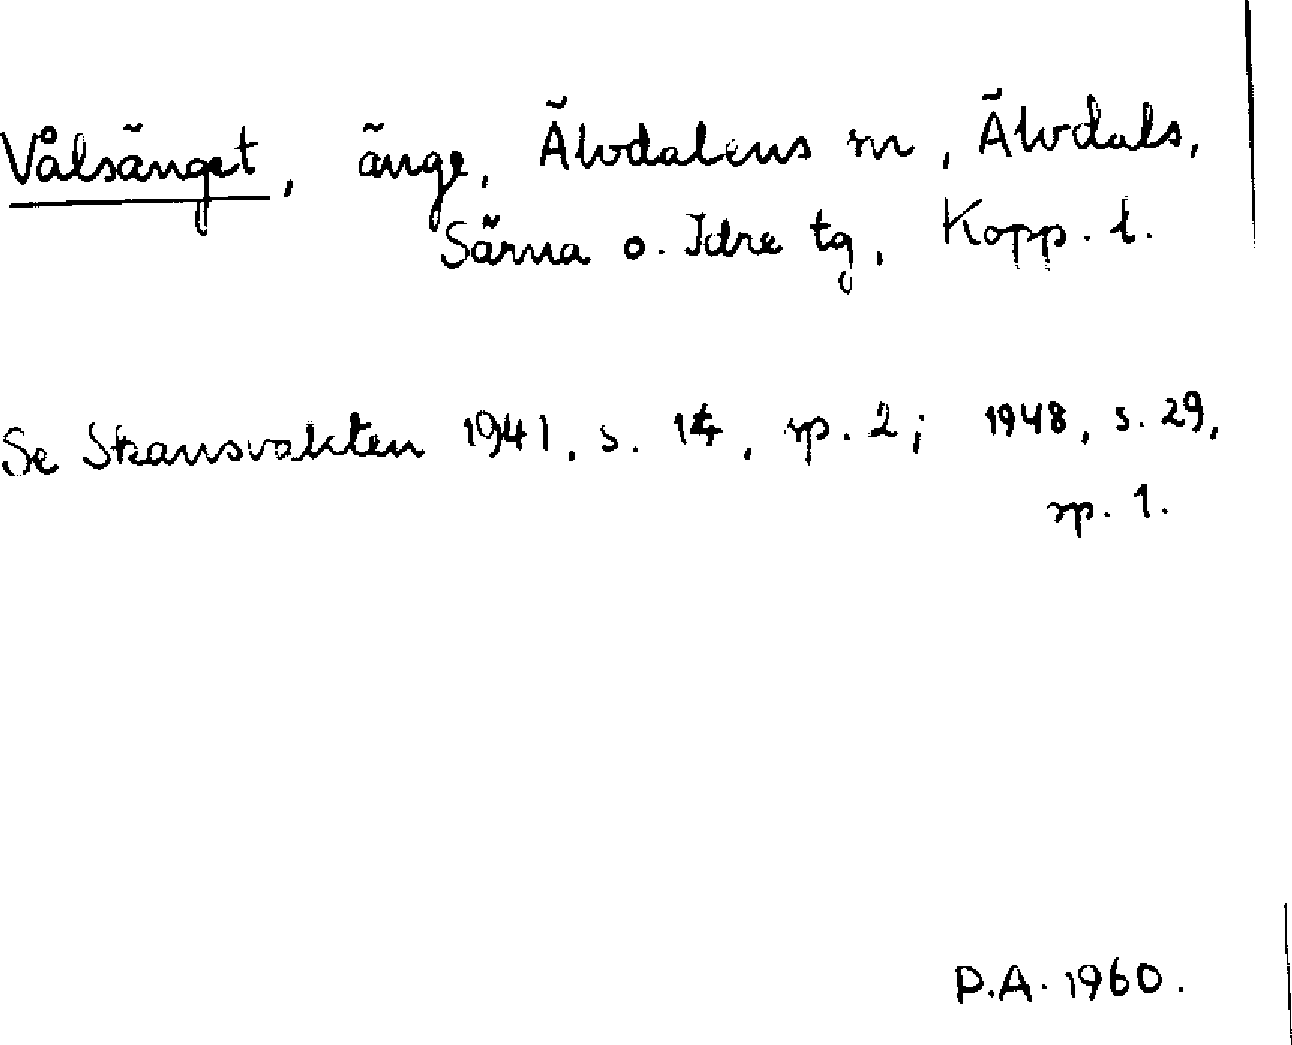 Vålsänget, änge, Älvdalens sn, Älvdals,
Särna o. Idre tg, Kopp. l.
Se Skansvakten 1941, s. 14, sp. 2; 1948, s. 29,
sp. 1.
P.A. 1960.